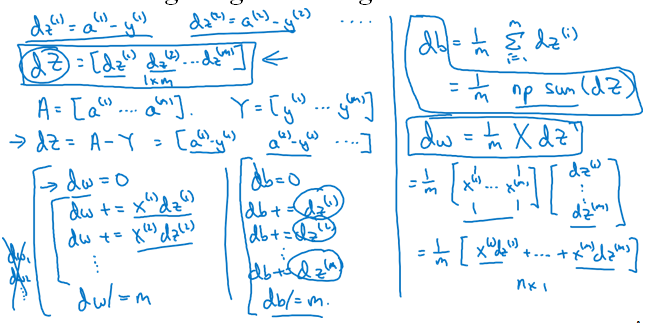 dz⁽¹⁾ = a⁽¹⁾ - y⁽¹⁾ dz⁽²⁾ = a⁽²⁾ - y⁽²⁾ ....
dZ = [dz⁽¹⁾ dz⁽²⁾ ... dz⁽ᵐ⁾] ←
1×m
A = [a⁽¹⁾ ... a⁽ᵐ⁾]. Y = [y⁽¹⁾ ... y⁽ᵐ⁾]
→ dz = A - Y = [a⁽¹⁾-y⁽¹⁾ a⁽²⁾-y⁽²⁾ ....]
→ dw = 0
dw += x⁽¹⁾dz⁽¹⁾
dw += x⁽²⁾dz⁽²⁾
⋮
dw /= m
dw₁
dw₂
⋮
db = 0
db += dz⁽¹⁾
db += dz⁽²⁾
⋮
db += dz⁽ᵐ⁾
db /= m.
db = 1/m Σᵢ₌₁ᵐ dz⁽ⁱ⁾
= 1/m np sum(dZ)
dw = 1/m X dzᵀ
= 1/m [x⁽¹⁾ ... x⁽ᵐ⁾] [dz⁽¹⁾ ⋮ dz⁽ᵐ⁾]
= 1/m [x⁽¹⁾dz⁽¹⁾ + ... + x⁽ᵐ⁾dz⁽ᵐ⁾]
n×1